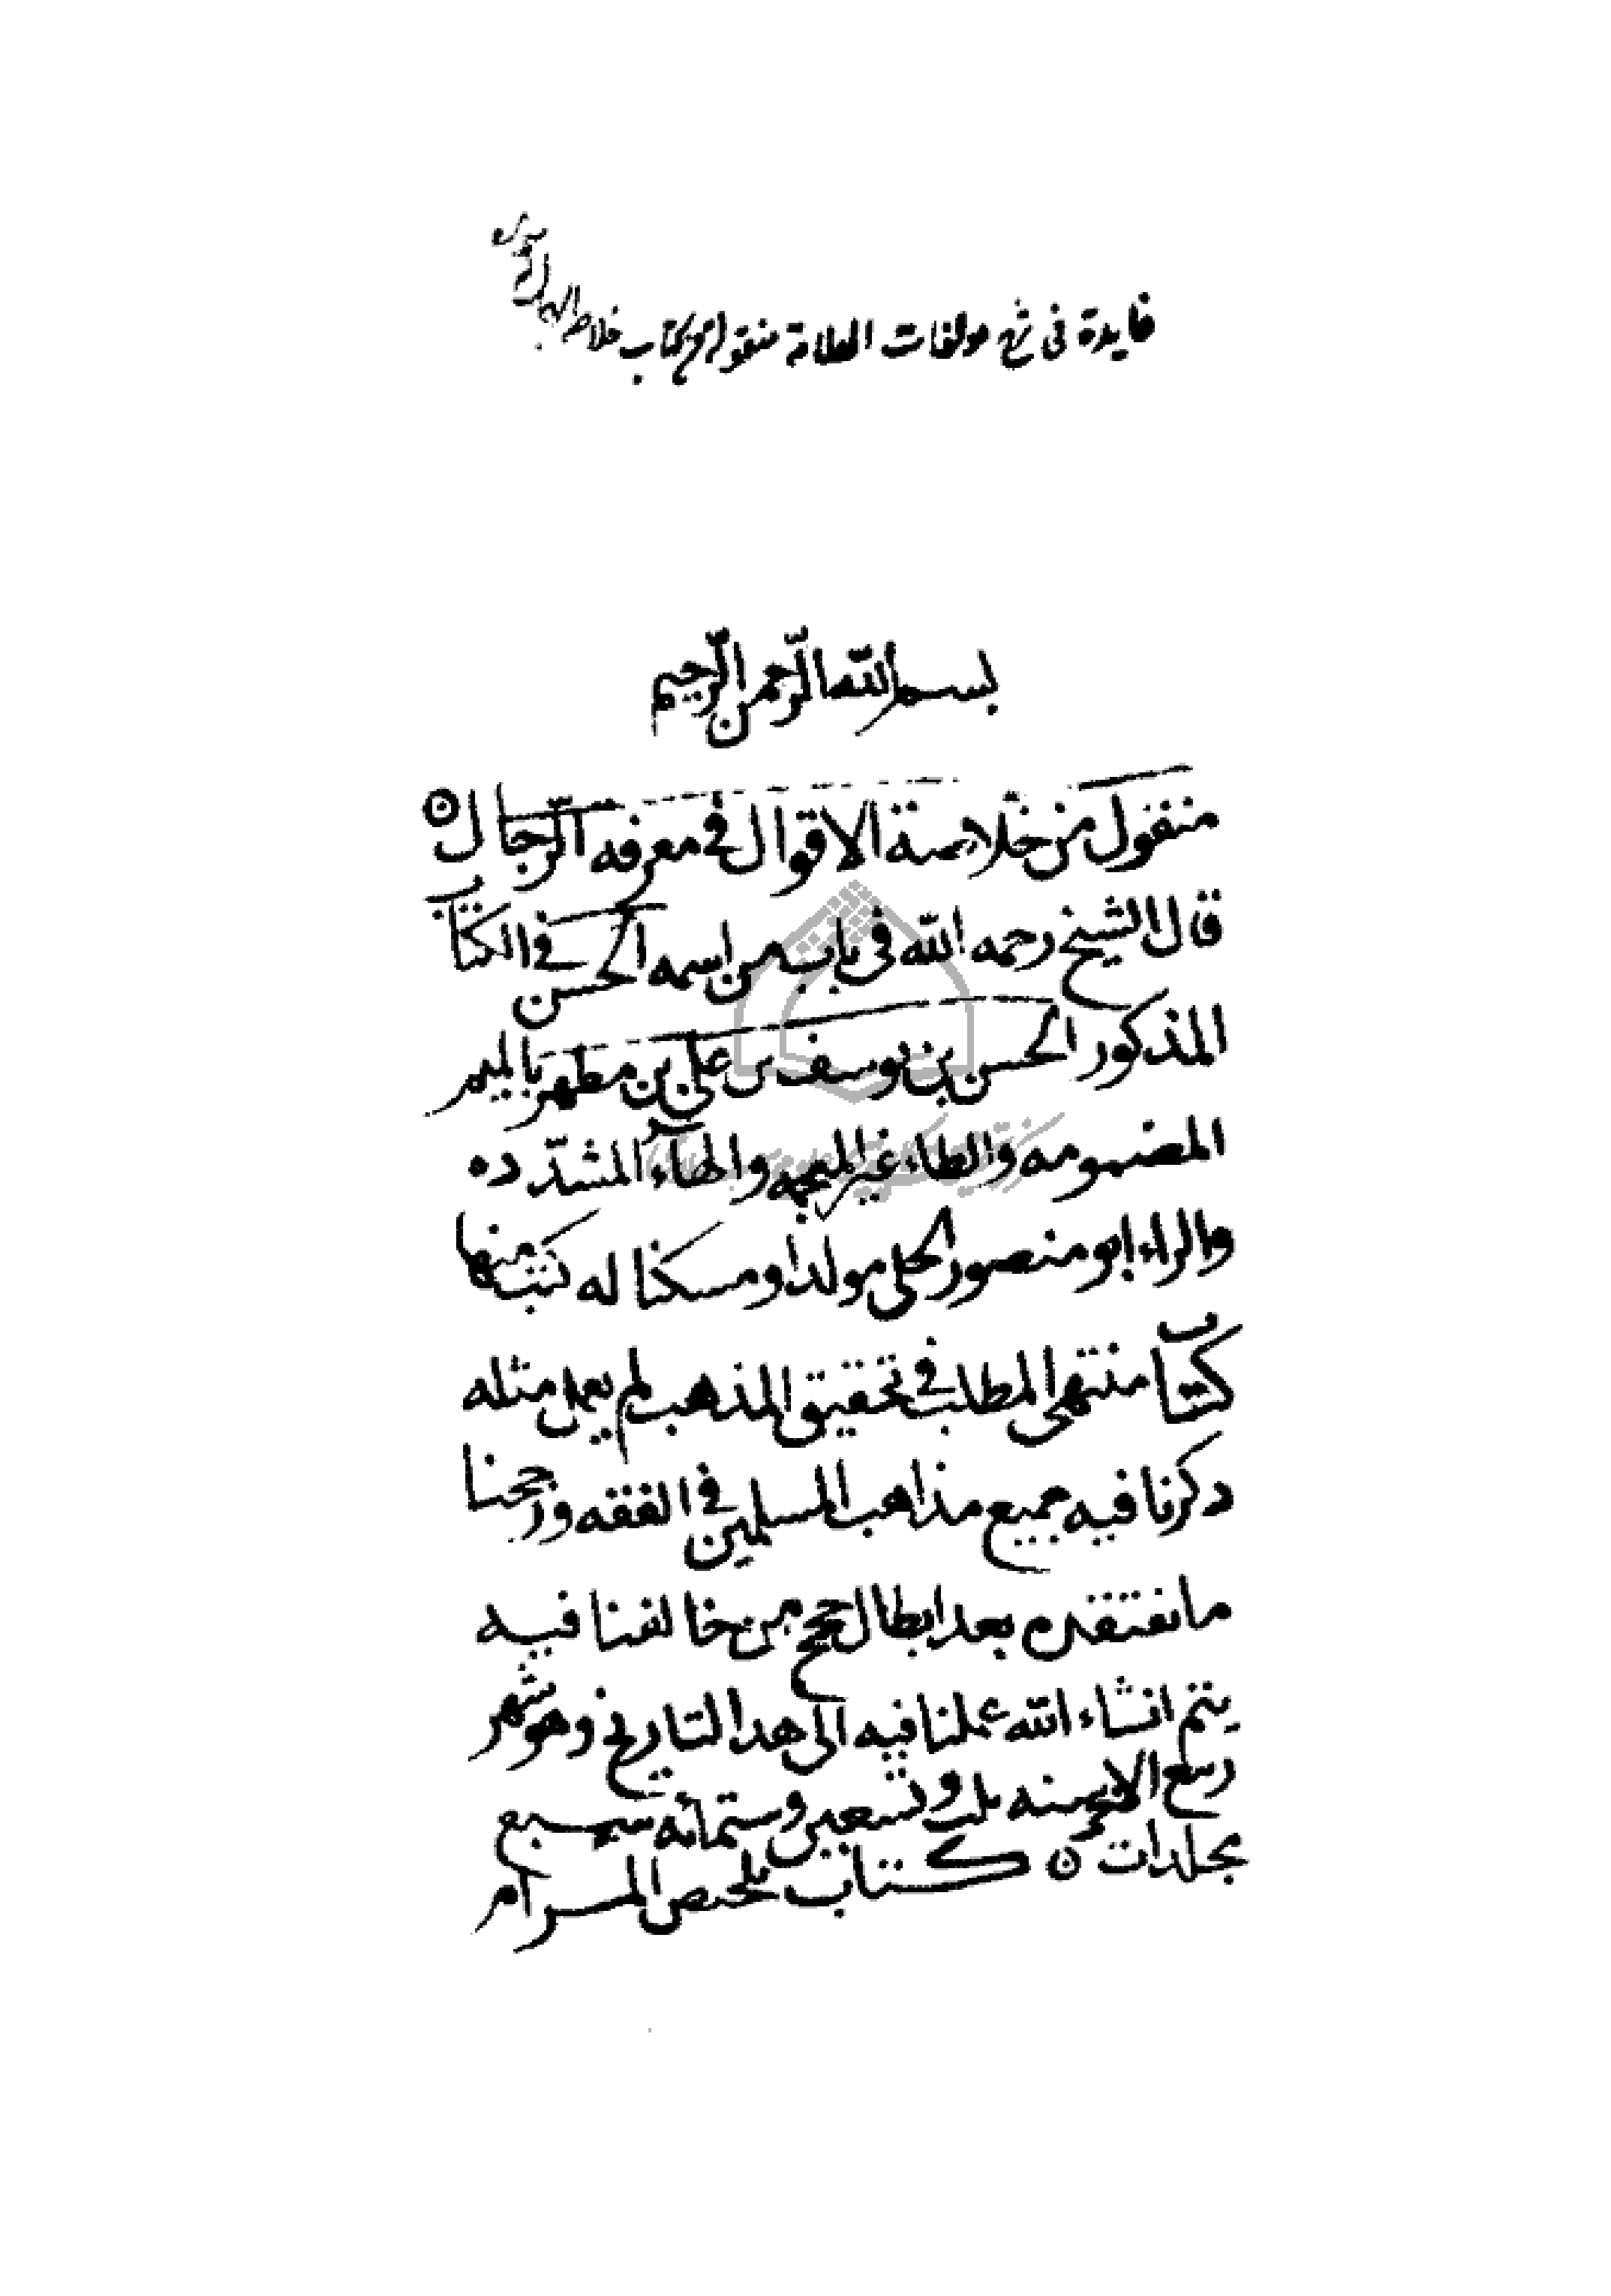 فايدة فى شرح مولفات العلامة منقول من كتاب خلاصة
بسم الله الرّحمن الرّحيم
منقول من خلاصة الاقوال في معرفه الرّجال
قال الشيخ رحمه الله فى باب من اسمه الحسن في الكتاب
المذكور الحسن بن يوسف بن على بن مطهر بالميم
المضمومه والطاء غير المعجمه والهاء المشدّده
والراء ابو منصور الحلى مولدا ومسكنا له كتب منها
كتاب منتهى المطلب في تحقيق المذهب لم يعمل مثله
دكرنا فيه جميع مذاهب المسلمين في الفقه ورجحنا
ما نعتقده بعد ابطال حجج من خالفنا فيه
يتم انشاء الله عملنا فيه الى هدا التاريخ وهو شهر
ربيع الاخر سنه ثلث وتسعين وستمائه سبع
مجلدات ه كتاب تلخيص المرام